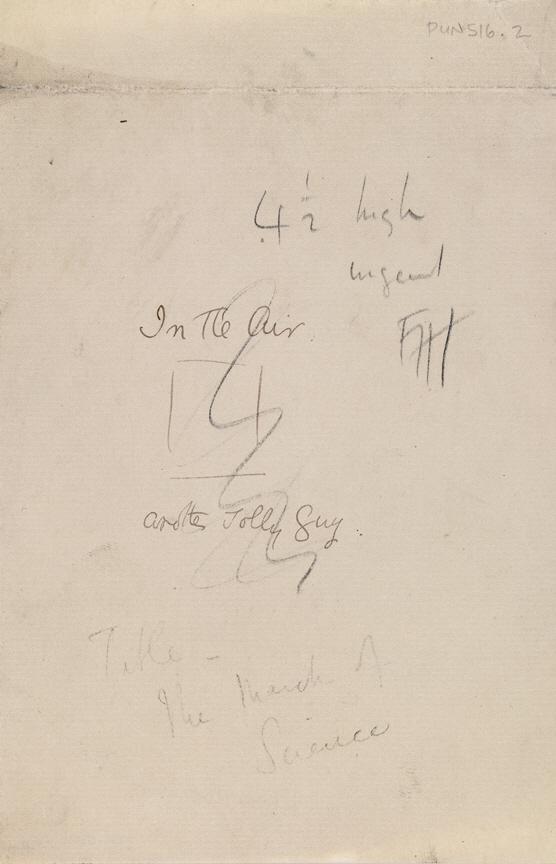 PUN516.2
4½ high
urgent
In The Air.
another Jolly Guy.
Title -
The March of
Science